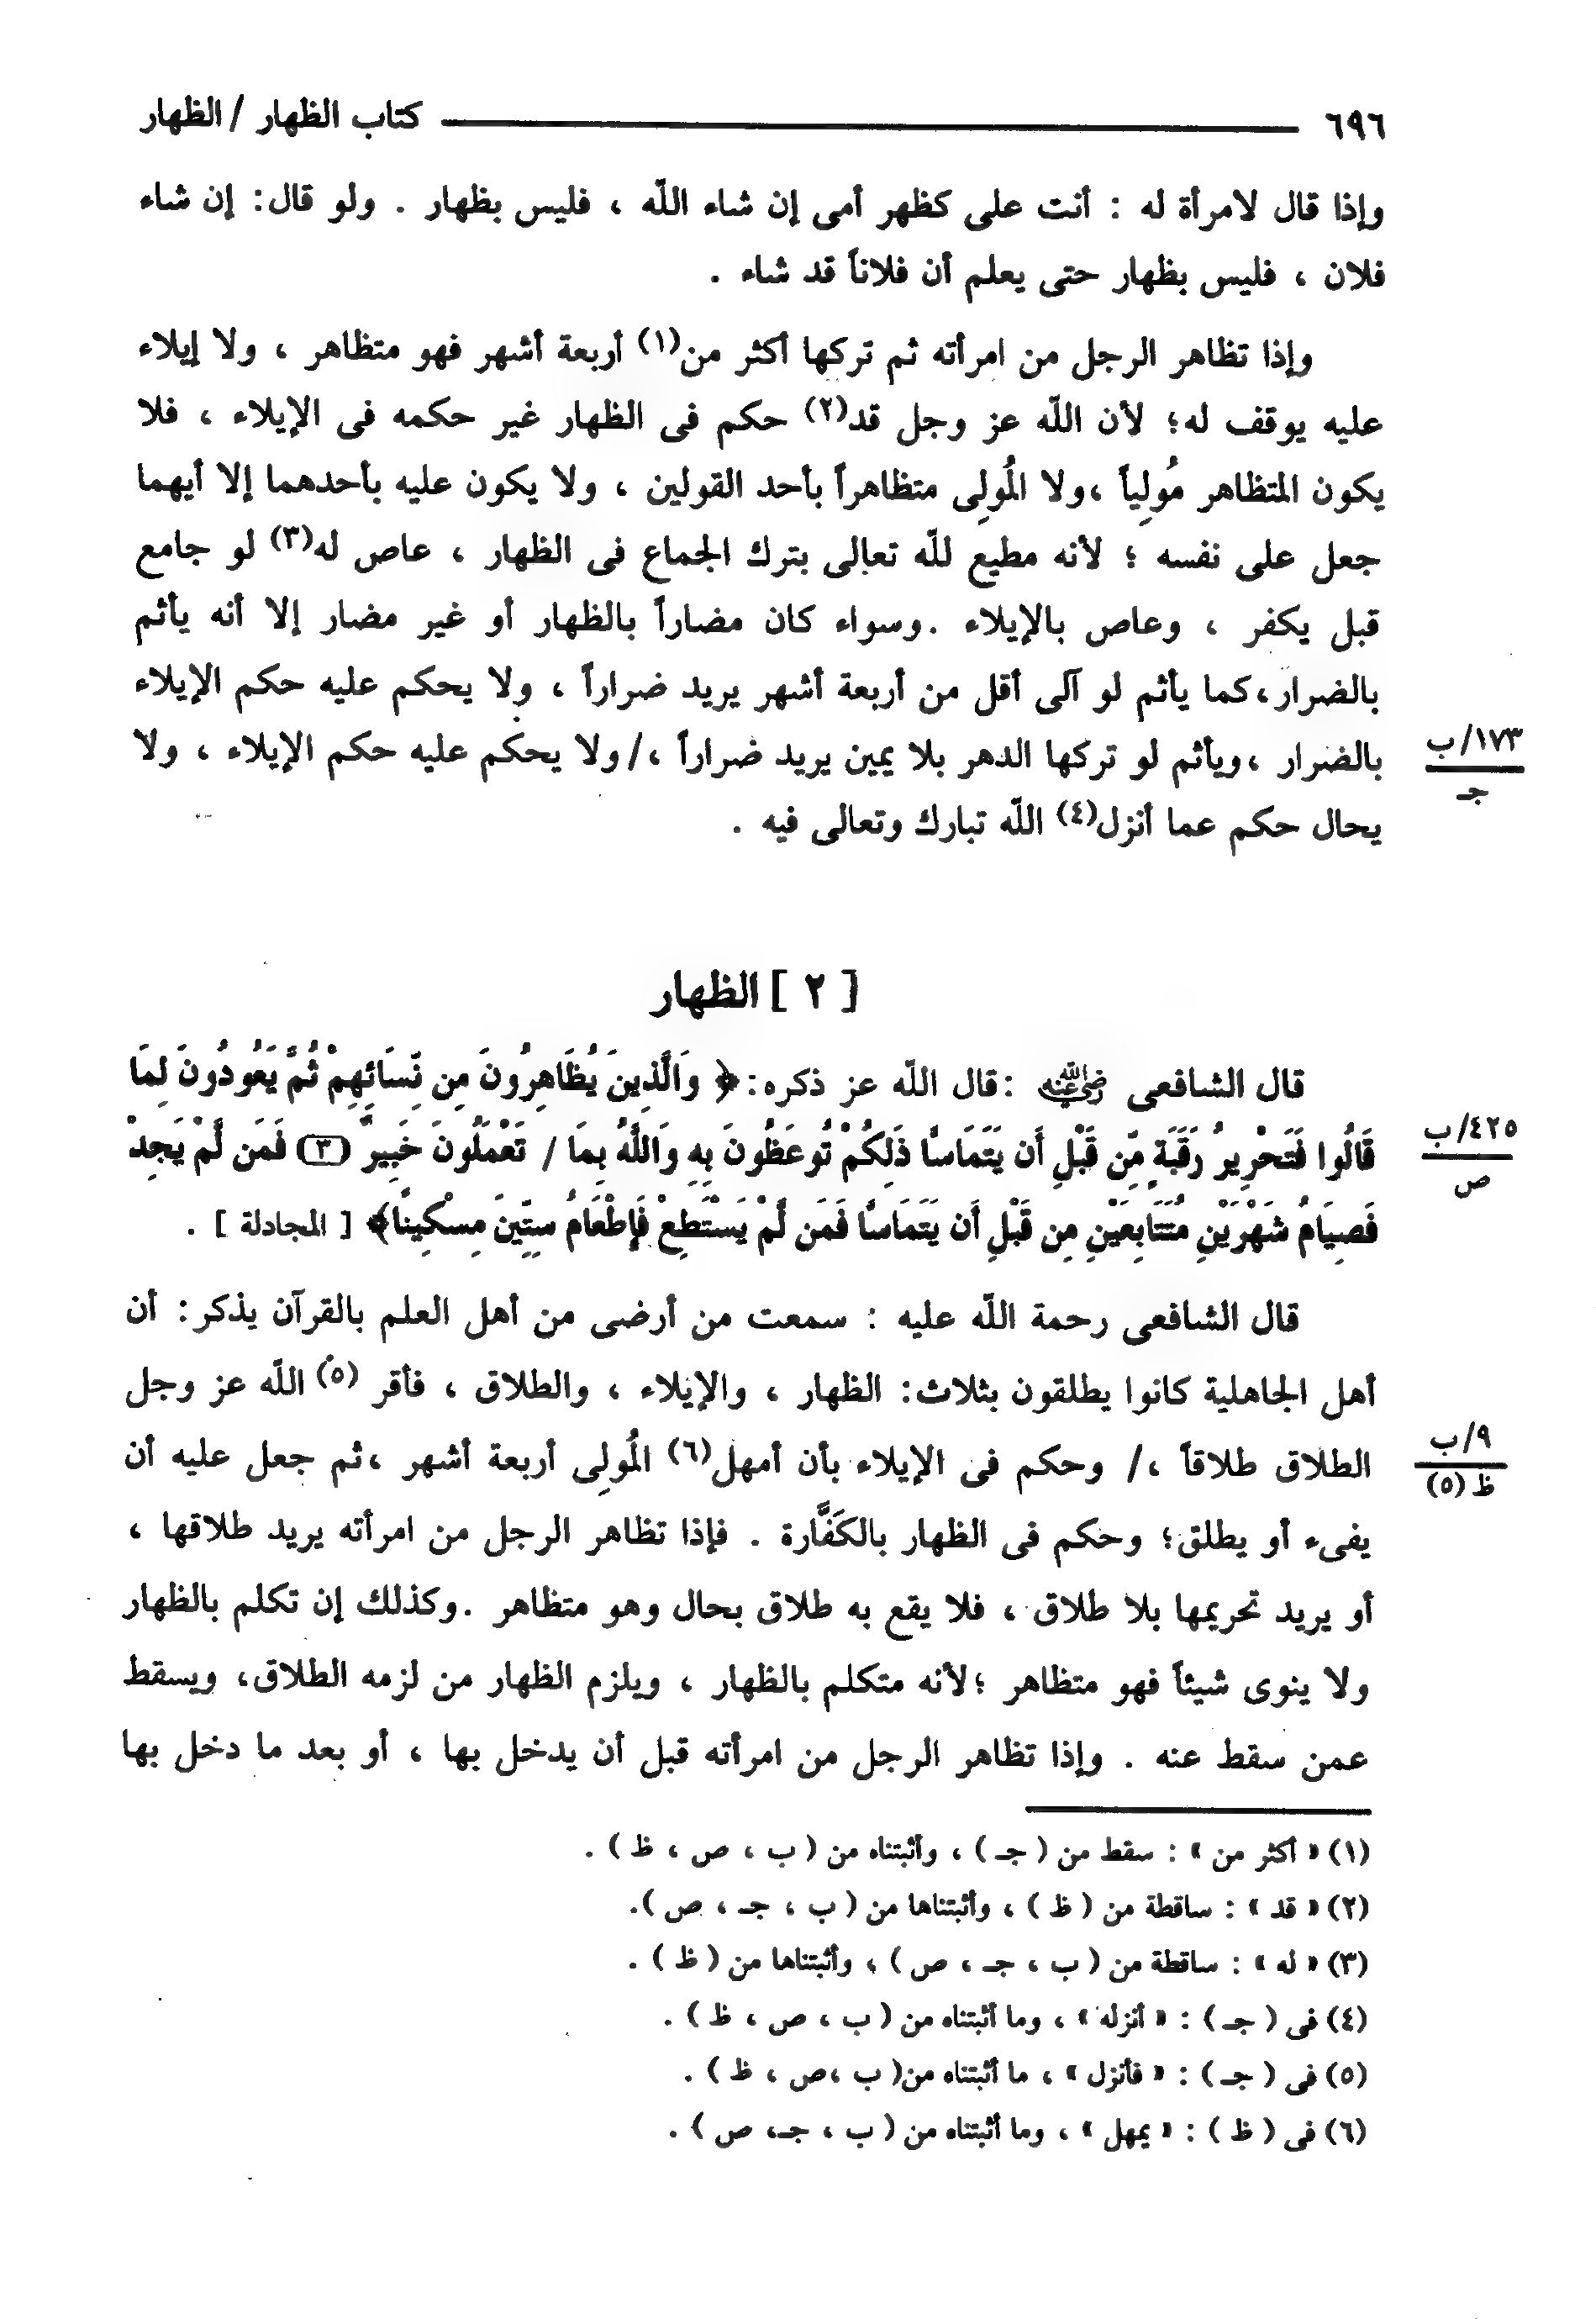 ٦٩٦ كتاب الظهار / الظهار
وإذا قال لامرأة له : أنت على كظهر أمى إن شاء اللّه ، فليس بظهار . ولو قال: إن شاء
فلان ، فليس بظهار حتى يعلم أن فلاناً قد شاء .
وإذا تظاهر الرجل من امرأته ثم تركها أكثر من(١) أربعة أشهر فهو متظاهر ، ولا إيلاء
عليه يوقف له؛ لأن اللّه عز وجل قد(٢) حكم فى الظهار غير حكمه فى الإيلاء ، فلا
يكون المتظاهر مُولِياً ،ولا المُولِى متظاهراً بأحد القولين ، ولا يكون عليه بأحدهما إلا أيهما
جعل على نفسه ؛ لأنه مطيع للّه تعالى بترك الجماع فى الظهار ، عاص له(٣) لو جامع
قبل يكفر ، وعاص بالإيلاء .وسواء كان مضاراً بالظهار أو غير مضار إلا أنه يأثم
بالضرار،كما يأثم لو آلى أقل من أربعة أشهر يريد ضراراً ، ولا يحكم عليه حكم الإيلاء
بالضرار ،ويأثم لو تركها الدهر بلا يمين يريد ضراراً ،/ ولا يحكم عليه حكم الإيلاء ، ولا
١٧٣/ب
جـ
يحال حكم عما أنزل(٤) اللّه تبارك وتعالى فيه .
[ ٢ ] الظهار
قال الشافعى رضي الله عنه :قال اللّه عز ذكره: ﴿ وَالَّذِينَ يُظَاهِرُونَ مِن نِّسَائِهِمْ ثُمَّ يَعُودُونَ لِمَا
قَالُوا فَتَحْرِيرُ رَقَبَةٍ مِّن قَبْلِ أَن يَتَمَاسَّا ذَلِكُمْ تُوعَظُونَ بِهِ وَاللَّهُ بِمَا / تَعْمَلُونَ خَبِيرٌ (٣) فَمَن لَّمْ يَجِدْ
٤٢٥/ب
ص
فَصِيَامُ شَهْرَيْنِ مُتَتَابِعَيْنِ مِن قَبْلِ أَن يَتَمَاسَّا فَمَن لَّمْ يَسْتَطِعْ فَإِطْعَامُ سِتِّينَ مِسْكِينًا﴾ [ المجادلة ] .
قال الشافعى رحمة اللّه عليه : سمعت من أرضى من أهل العلم بالقرآن يذكر: أن
أهل الجاهلية كانوا يطلقون بثلاث: الظهار ، والإيلاء ، والطلاق ، فأقر (٥) اللّه عز وجل
الطلاق طلاقاً ،/ وحكم فى الإيلاء بأن أمهل(٦) المُولِى أربعة أشهر ،ثم جعل عليه أن
٩/ب
ظ (٥)
يفىء أو يطلق؛ وحكم فى الظهار بالكَفَّارة . فإذا تظاهر الرجل من امرأته يريد طلاقها ،
أو يريد تحريمها بلا طلاق ، فلا يقع به طلاق بحال وهو متظاهر .وكذلك إن تكلم بالظهار
ولا ينوى شيئاً فهو متظاهر ؛لأنه متكلم بالظهار ، ويلزم الظهار من لزمه الطلاق، ويسقط
عمن سقط عنه . وإذا تظاهر الرجل من امرأته قبل أن يدخل بها ، أو بعد ما دخل بها
(١) « أكثر من » : سقط من ( جـ ) ، وأثبتناه من ( ب ، ص ، ظ ) .
(٢) « قد » : ساقطة من ( ظ ) ، وأثبتناها من ( ب ، جـ ، ص ).
(٣) « له » : ساقطة من ( ب ، جـ ، ص ) ، وأثبتناها من ( ظ ) .
(٤) فى ( جـ ) : « أنزله » ، وما أثبتناه من ( ب ، ص ، ظ ) .
(٥) فى ( جـ ) : « فأنزل » ، ما أثبتناه من( ب ،ص ، ظ ) .
(٦) فى ( ظ ) : « يمهل » ، وما أثبتناه من ( ب ، جـ، ص ) .